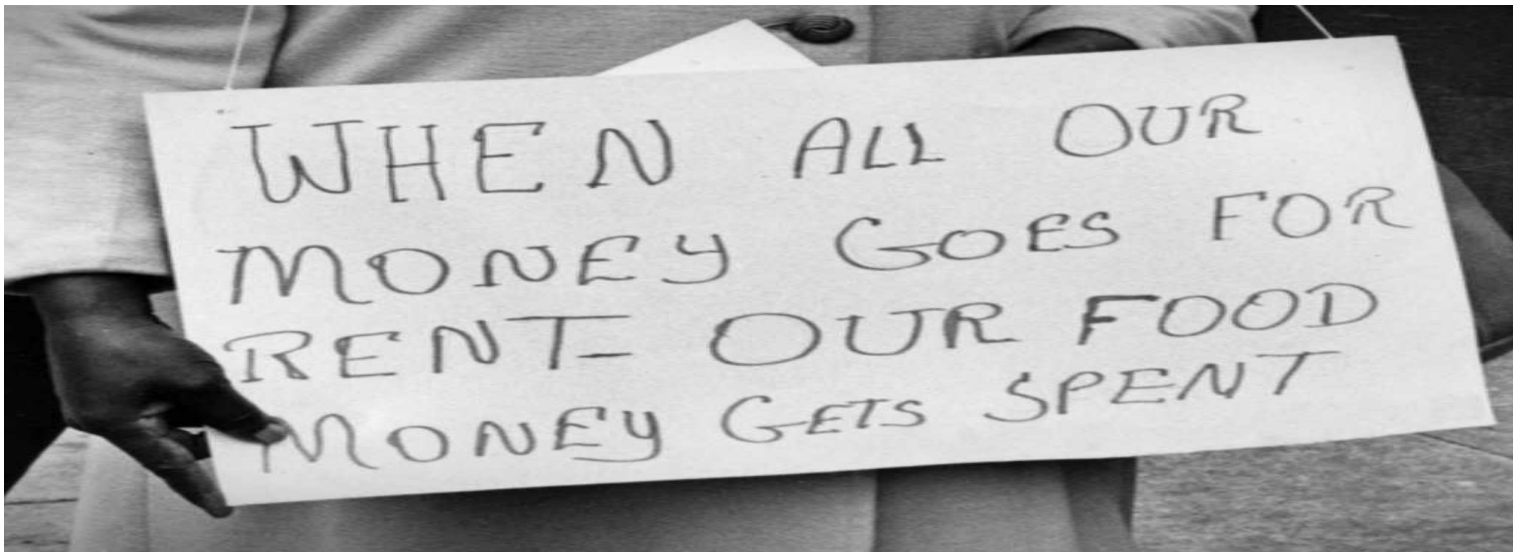 WHEN ALL OUR
MONEY GOES FOR
RENT- OUR FOOD
MONEY GETS SPENT